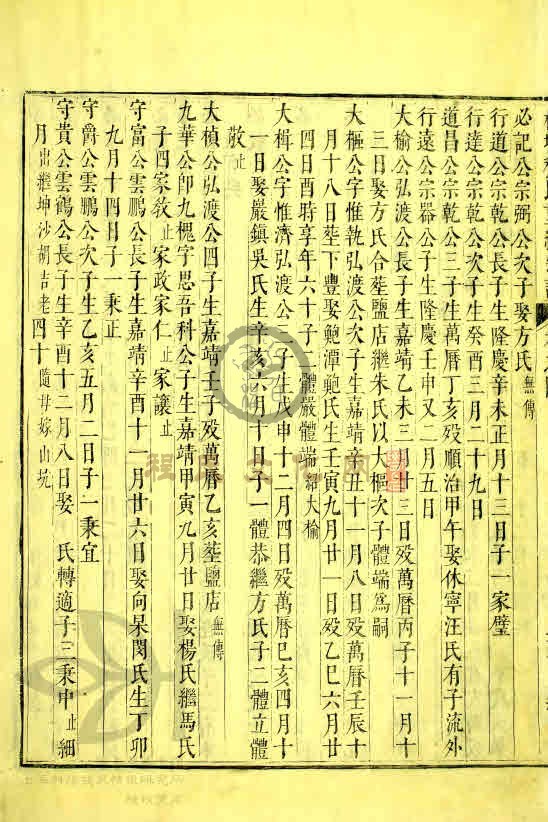 必記公宗弼公次子娶方氏無傳
行道公宗乾公長子生隆慶辛未正月十三日子一家璧
行達公宗乾公次子生癸酉三月二十九日
道昌公宗乾公三子生萬曆丁亥歿順治甲午娶休寧汪氏有子流外
行遠公宗器公子生隆慶壬申又二月五日
大榆公弘渡公長子生嘉靖乙未三月廿三日歿萬曆丙子十一月十
三日娶方氏合塟鹽店繼朱氏以大樞次子體端爲嗣
大樞公字惟乹弘渡公次子生嘉靖辛丑十一月八日歿萬曆壬辰十
月十八日塟下豐娶鮑潭鮑氏生壬寅九月廿一日歿乙巳六月廿
四日酉時享年六十子二體嚴體端紹大榆
大楫公字惟濟弘渡公三子生戊申十二月四日歿萬曆己亥四月十
一日娶巖鎮吳氏生辛亥六月十日子一體恭繼方氏子二體立體
敬止
大楨公弘渡公四子生嘉靖壬子歿萬曆乙亥塟鹽店無傳
九華公卽九槐字思吾科公子生嘉靖甲寅九月廿日娶楊氏繼馬氏
子四家敎止家政家仁止家讓止
守富公雲鵬公長子生嘉靖辛酉十一月廿六日娶向杲閔氏生丁卯
九月十四日子一秉正
守爵公雲鵬公次子生乙亥五月二日子一秉宜
守貴公雲鶴公長子生辛酉十二月八日娶 氏轉適子三秉中止細
月出繼坤沙胡吉老四十隨母嫁山坑